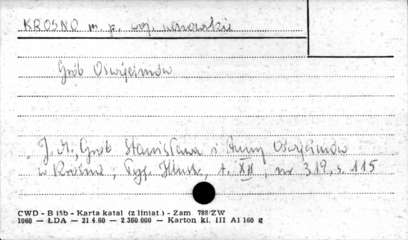 KROSNO m. p. woj. lwowskie
Grób Oświęcimów
J. M., Grób Stanisława i Anny Oświęcimów
w Krośnie, Tyg. Illustr., t. XII, nr 319, s. 115
CWD - B 15b - Karta katal (z liniat) - Zam 788/ZW
1060 — ŁDA — 21.4.60 — 2 360.000 — Karton kl. III A1 160 g